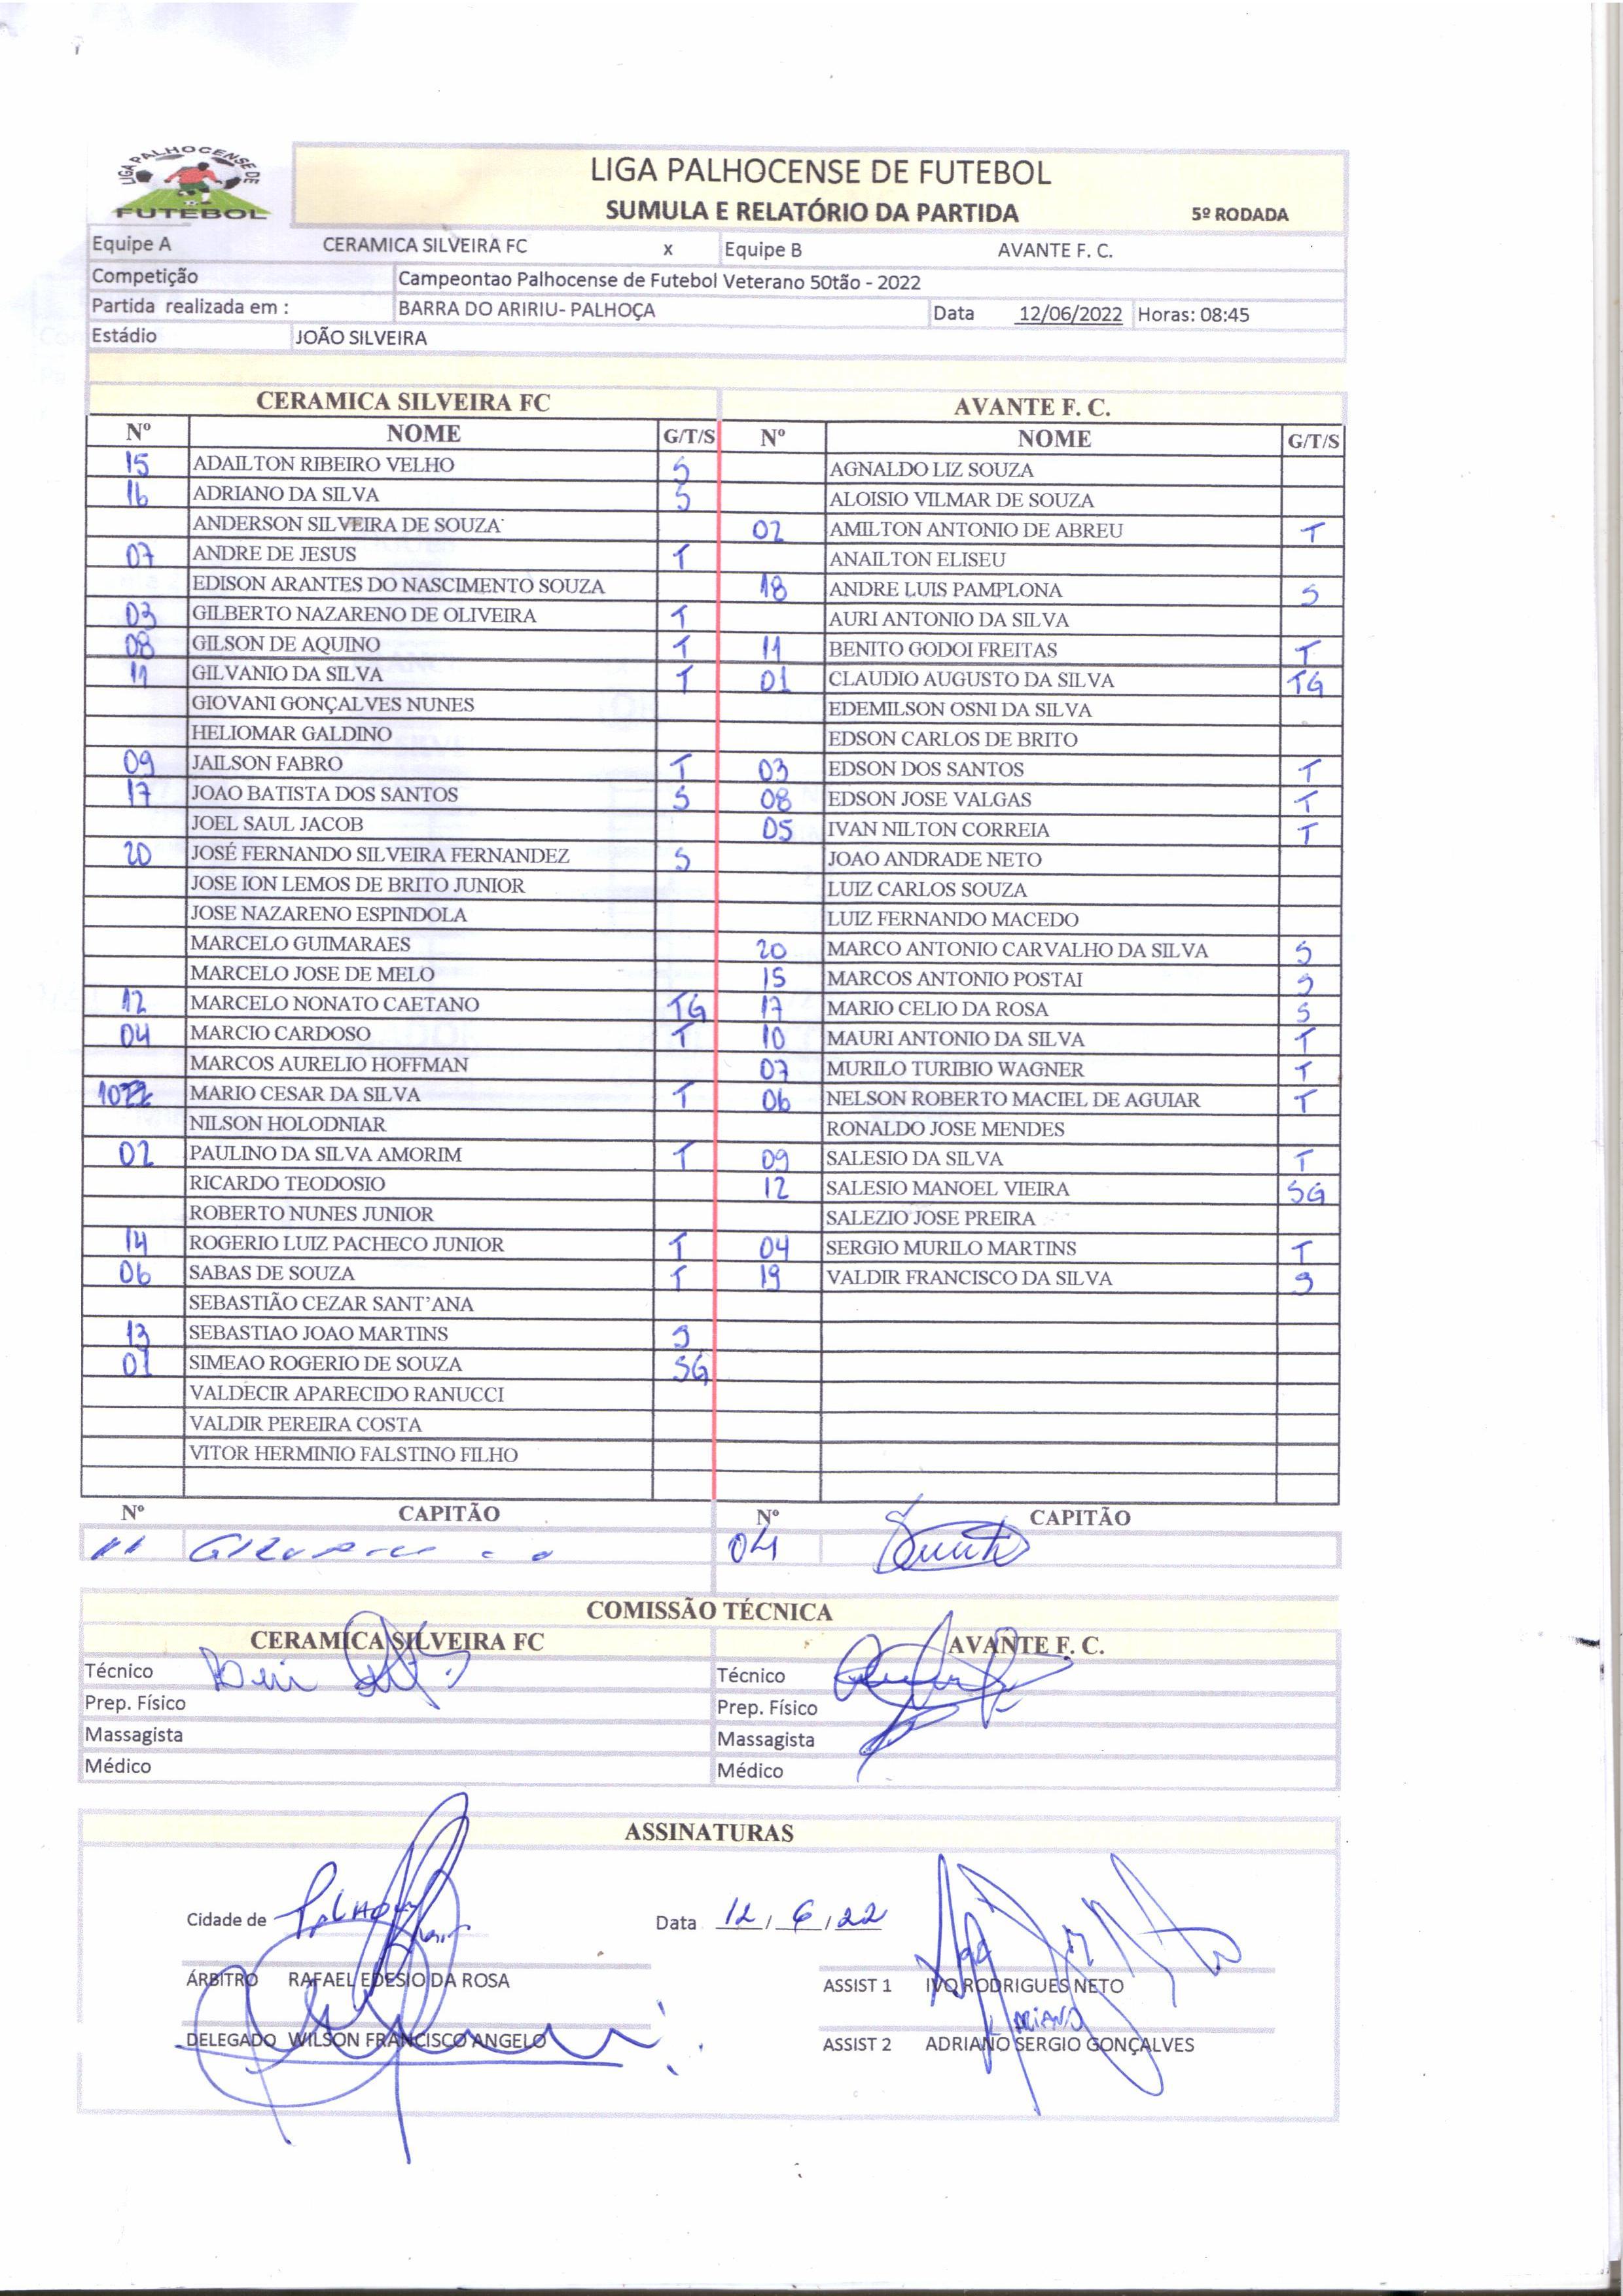 LIGA PALHOCENSE DE FUTEBOL
LIGA PALHOCENSE DE FUTEBOL
SUMULA E RELATÓRIO DA PARTIDA 5º RODADA
Equipe A CERAMICA SILVEIRA FC x Equipe B AVANTE F. C.
Competição Campeontao Palhocense de Futebol Veterano 50tão - 2022
Partida realizada em : BARRA DO ARIRIU- PALHOÇA Data 12/06/2022 Horas: 08:45
Estádio JOÃO SILVEIRA
CERAMICA SILVEIRA FC AVANTE F. C.
Nº NOME G/T/S Nº NOME G/T/S
15 ADAILTON RIBEIRO VELHO S AGNALDO LIZ SOUZA
16 ADRIANO DA SILVA S ALOISIO VILMAR DE SOUZA
ANDERSON SILVEIRA DE SOUZA 02 AMILTON ANTONIO DE ABREU T
07 ANDRE DE JESUS T ANAILTON ELISEU
EDISON ARANTES DO NASCIMENTO SOUZA 18 ANDRE LUIS PAMPLONA S
03 GILBERTO NAZARENO DE OLIVEIRA T AURI ANTONIO DA SILVA
08 GILSON DE AQUINO T 11 BENITO GODOI FREITAS T
11 GILVANIO DA SILVA T 01 CLAUDIO AUGUSTO DA SILVA TG
GIOVANI GONÇALVES NUNES EDEMILSON OSNI DA SILVA
HELIOMAR GALDINO EDSON CARLOS DE BRITO
09 JAILSON FABRO T 03 EDSON DOS SANTOS T
17 JOAO BATISTA DOS SANTOS S 08 EDSON JOSE VALGAS T
JOEL SAUL JACOB 05 IVAN NILTON CORREIA T
20 JOSÉ FERNANDO SILVEIRA FERNANDEZ S JOAO ANDRADE NETO
JOSE ION LEMOS DE BRITO JUNIOR LUIZ CARLOS SOUZA
JOSE NAZARENO ESPINDOLA LUIZ FERNANDO MACEDO
MARCELO GUIMARAES 20 MARCO ANTONIO CARVALHO DA SILVA S
MARCELO JOSE DE MELO 15 MARCOS ANTONIO POSTAI S
12 MARCELO NONATO CAETANO TG 17 MARIO CELIO DA ROSA S
04 MARCIO CARDOSO T 10 MAURI ANTONIO DA SILVA T
MARCOS AURELIO HOFFMAN 07 MURILO TURIBIO WAGNER T
10 MARIO CESAR DA SILVA T 06 NELSON ROBERTO MACIEL DE AGUIAR T
NILSON HOLODNIAR RONALDO JOSE MENDES
02 PAULINO DA SILVA AMORIM T 09 SALESIO DA SILVA T
RICARDO TEODOSIO 12 SALESIO MANOEL VIEIRA SG
ROBERTO NUNES JUNIOR SALEZIO JOSE PREIRA
14 ROGERIO LUIZ PACHECO JUNIOR T 04 SERGIO MURILO MARTINS T
06 SABAS DE SOUZA T 19 VALDIR FRANCISCO DA SILVA S
SEBASTIÃO CEZAR SANT'ANA
13 SEBASTIAO JOAO MARTINS S
01 SIMEAO ROGERIO DE SOUZA SG
VALDECIR APARECIDO RANUCCI
VALDIR PEREIRA COSTA
VITOR HERMINIO FALSTINO FILHO
Nº CAPITÃO Nº CAPITÃO
11 04
COMISSÃO TÉCNICA
CERAMICA SILVEIRA FC AVANTE F. C.
Técnico Técnico
Prep. Físico Prep. Físico
Massagista Massagista
Médico Médico
ASSINATURAS
Cidade de Palhoça Data 12/6/22
ÁRBITRO RAFAEL EDESIO DA ROSA ASSIST 1 IVO RODRIGUES NETO
ADRIANO
DELEGADO WILSON FRANCISCO ANGELO ASSIST 2 ADRIANO SERGIO GONÇALVES